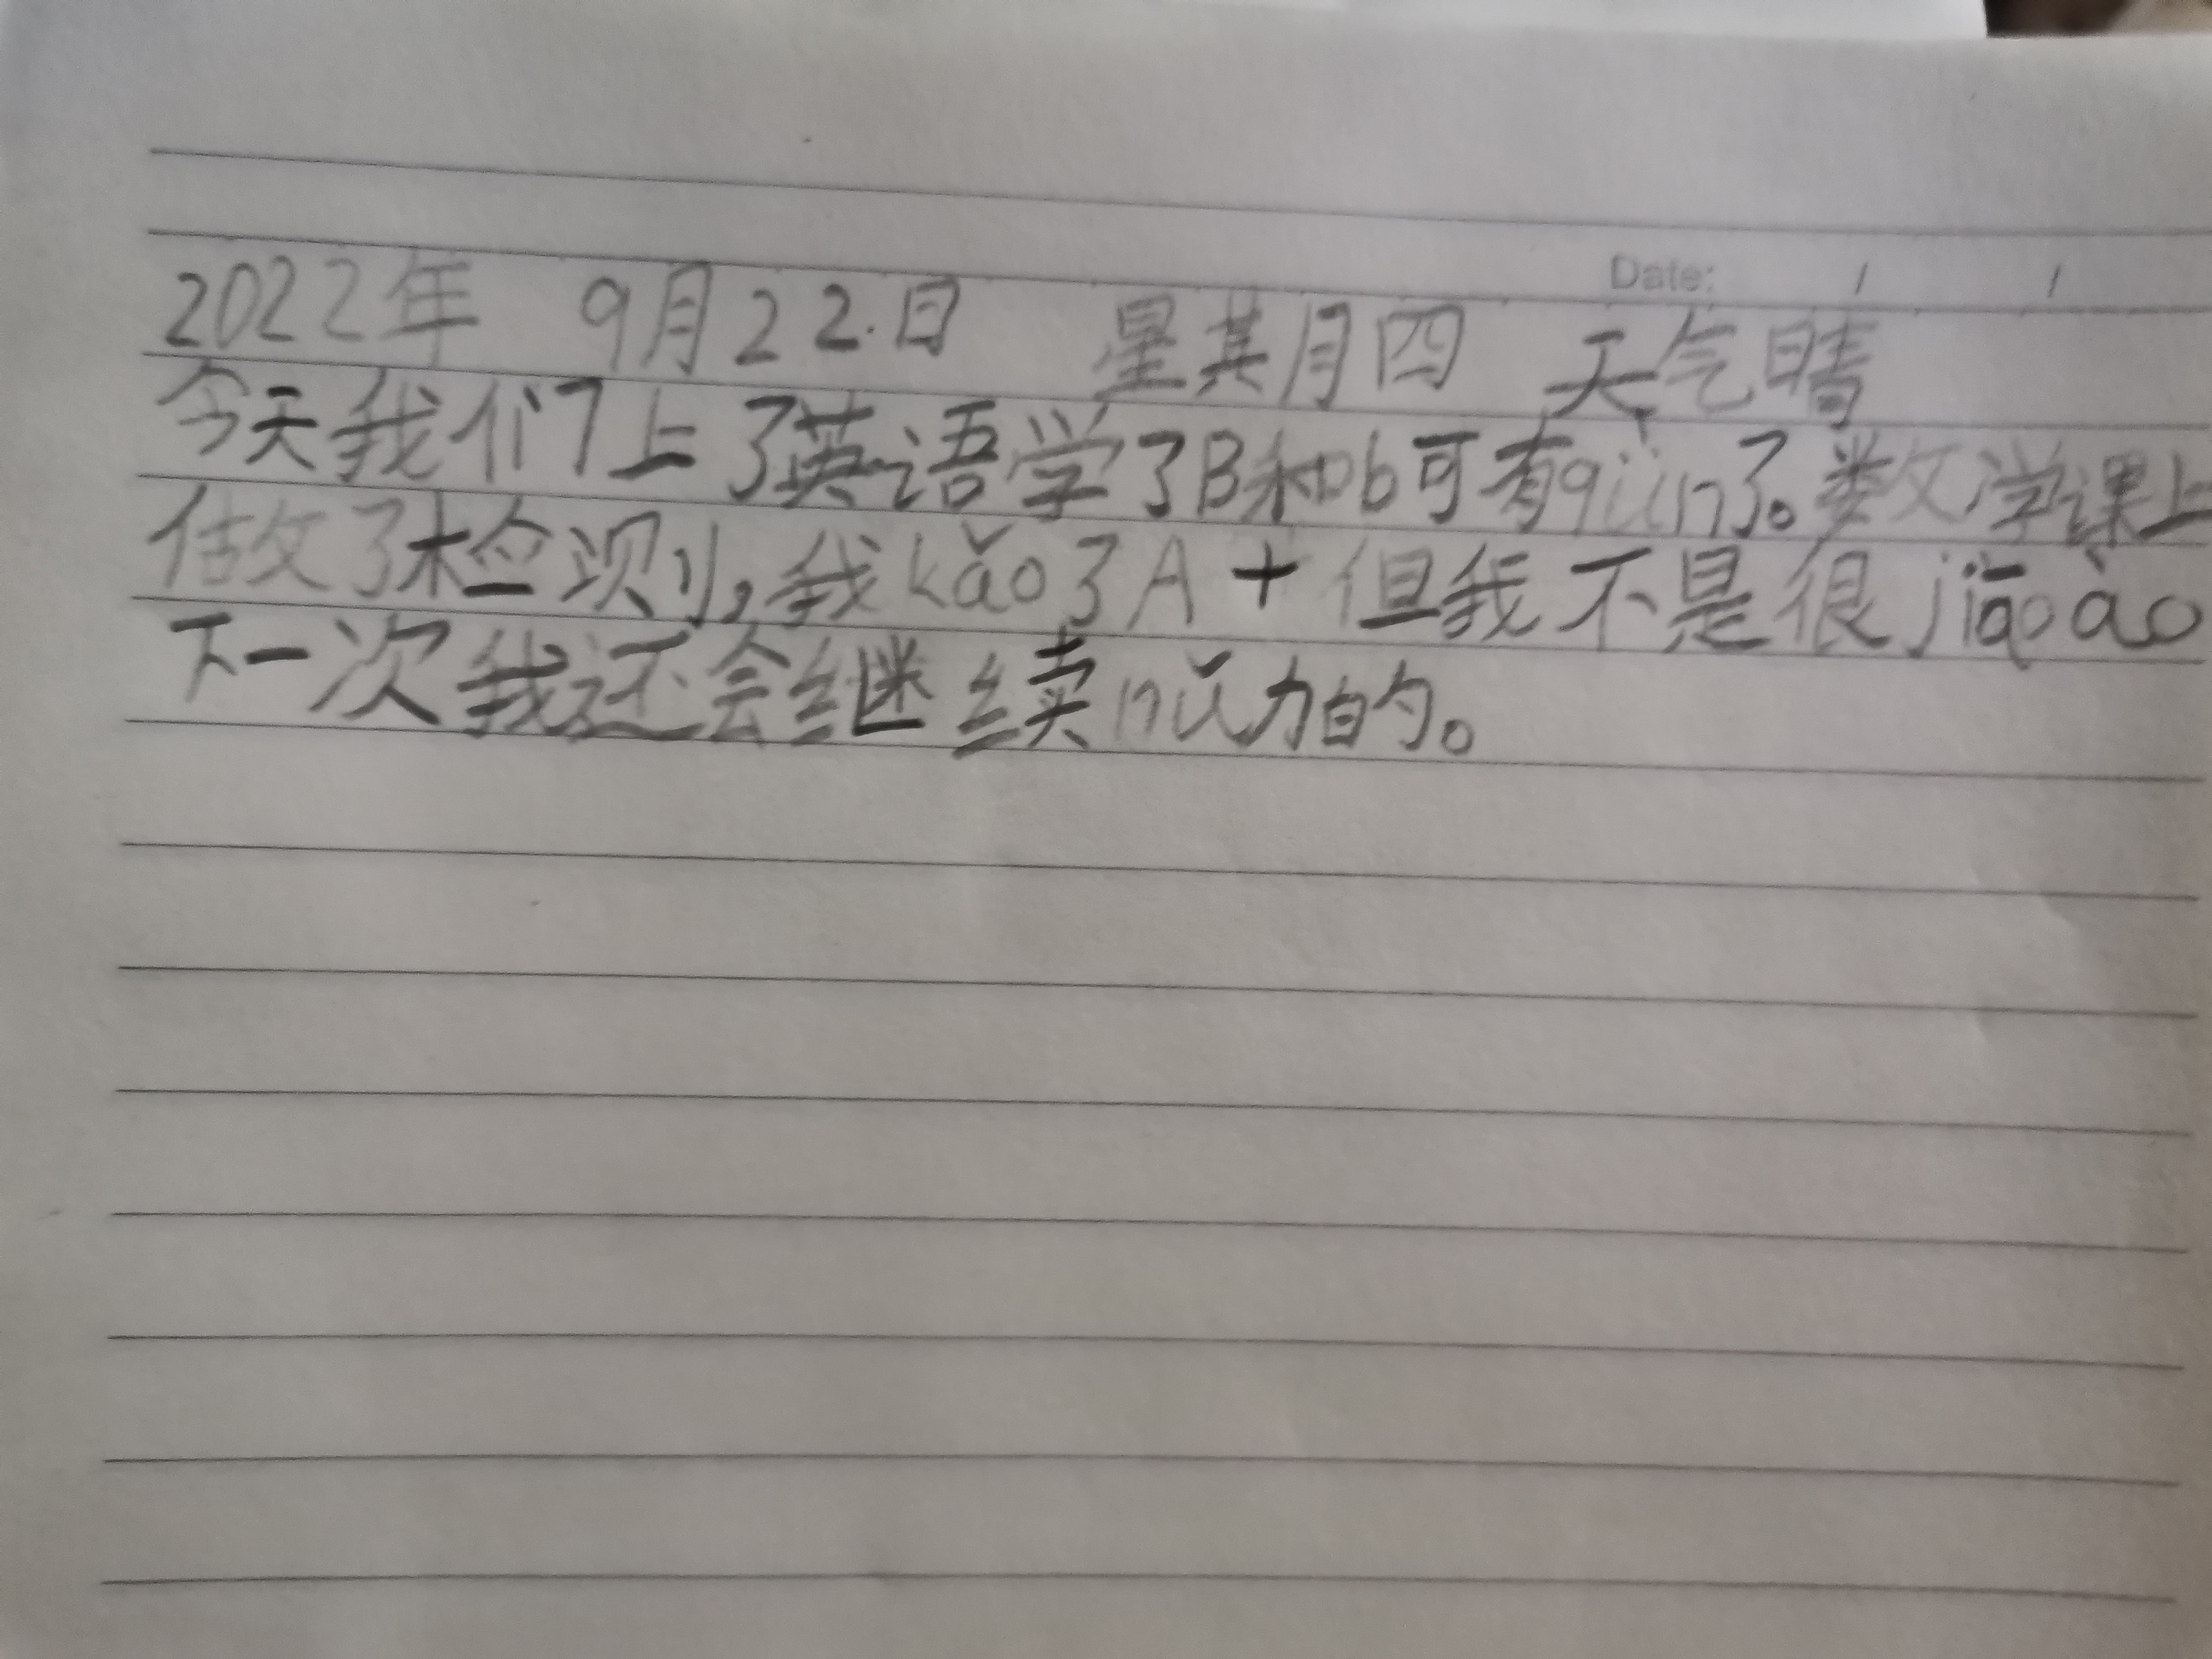 Date: / /
2022年 9月22.日 星其月四 天气晴
今天我们上了英语学了B和b可有qùn了。数学课上
做了检测,我kǎo了A+但我不是很jiāoào
下一次我还会继续nǔ力的。